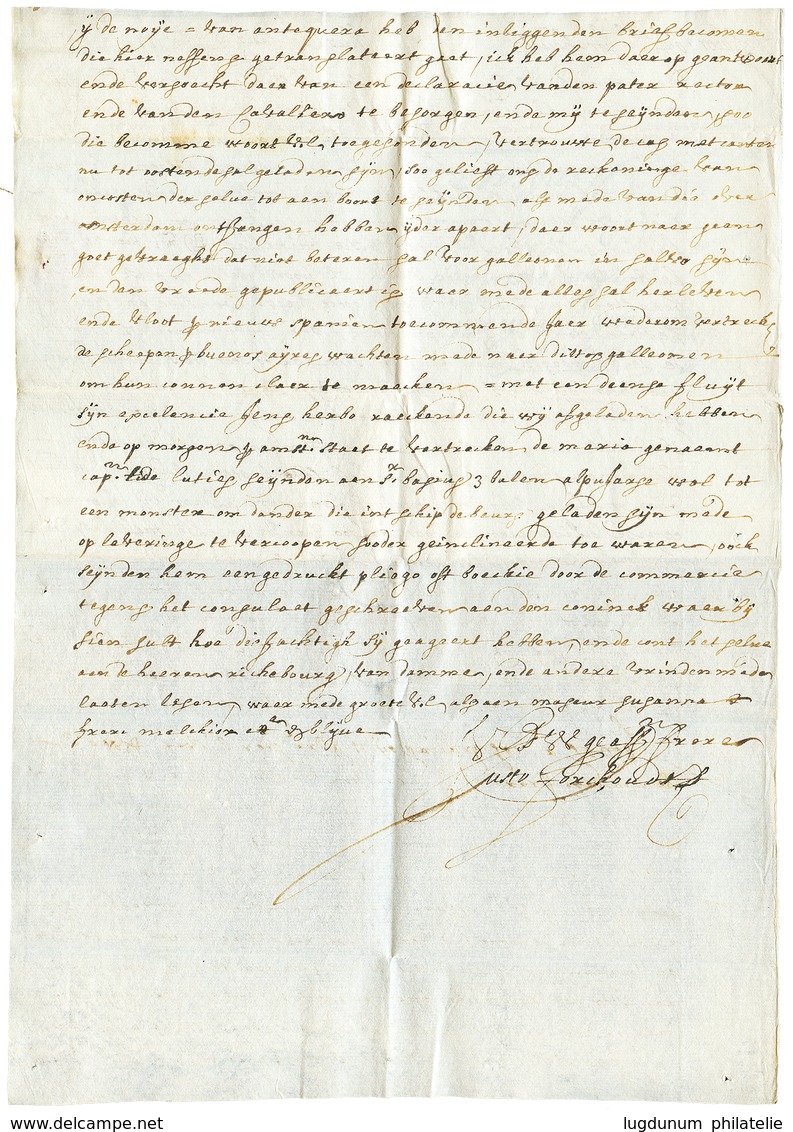 ÿ de noije = van antequera heb den inliggenden brief becomen
die hier neffens getranslateert gaet, ick heb hem daer op geantwoort
ende versocht daer van een declaracie vanden pater rector
ende van den Cavallero te besorgen, ende mij te seijnden, soo
die becomme woort V.L. toegesonden, vertrouwe de cas met
nu tot oostende sal geladen sijn, soo gelieft ons de reckeninge van
oncosten der selve tot aen boort te seijnden als mede van die over
amsterdam ontfangen hebben ijder apaert, daer woort naer geen
goet gevraeght dat niet beteren sal voor galleonen in salvo sijn
en den vrede gepubliceert is waer mede alles sal herleven
ende vloot p nieuw spanien toecommende Jaer wederom vertreck
de scheepen p buenos ayres wachten mede naer dittos galleonen
om hun connen claer te maecken = met een deense fluijt
sijn excelencie Jens herbo raeckende die wij afgeladen hebben
ende op morgen p amst. staet te vertrecken de maria genaemt
cap.n luties seijnden aen s.r basius 3 balen alpujarse wol tot
een monster om dander die int schip de beurs geladen sijn mede
op leveringe te vercoopen sooder geinclineerde toe waren, oock
seijnden hem een gedruckt pliego oft boeckie door de commercie
tegens het consulaet geschreeven aen den coninck waer bij
sien sult hoe sij geageert hebben, ende cont het selve
aen de heeren richebourg, van damme, ende andere vrinden mede
laeten lesen, waer mede groete V.L. als aen masoeur susanna &
frere melchior etta & blijve
V L geaff.n frere
Justo forchoudt
www.delcampe.net
lugdunum philatelie